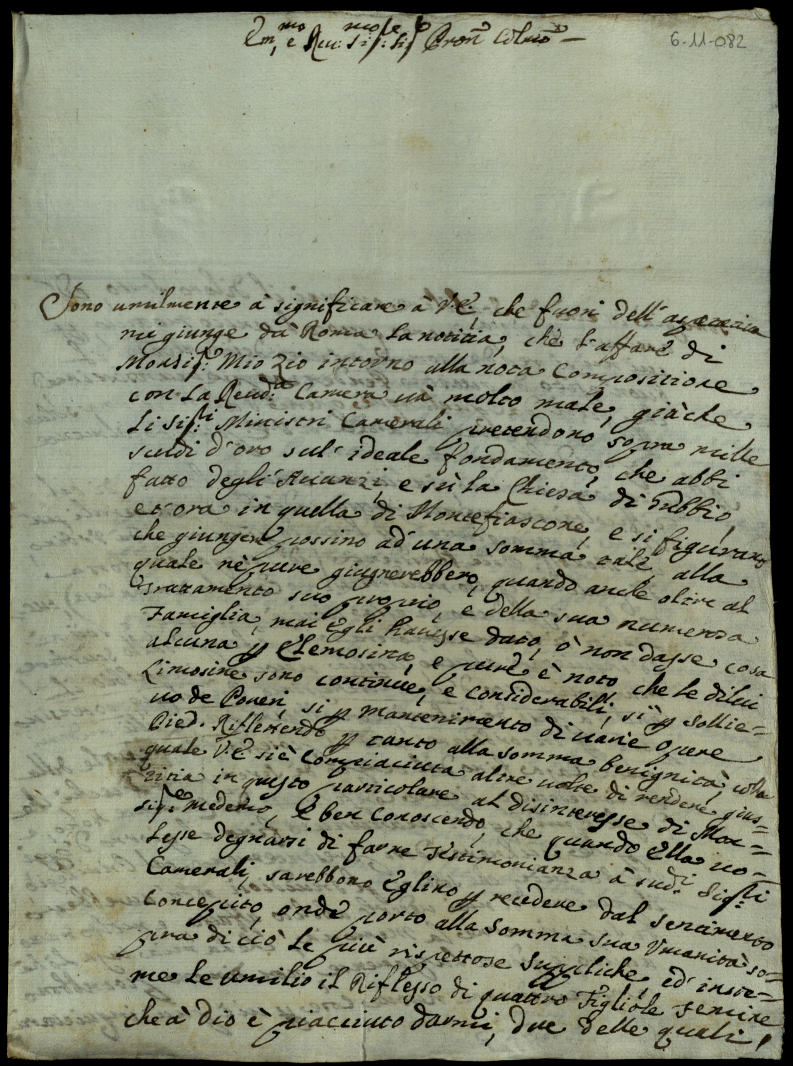 Em.mo e Reu: Sig.re Sig.re Pron. Colmo
6-11-082
Sono umilmente à significare à V.E., che fuori dell'
mi giunge da Roma la notitia, che l'affare di
Monsig.r Mio Zio intorno alla nota Compositione
con la Reud.a Camera uà molto male, giàche
li Sig.ri Ministri Camerali pretendono sopra mille
scudi d'oro sul' ideale fondamento, che abbi
fatto degli Auanzi, e sù la Chiesa di Gubbio,
et ora in quella di Montefiascone, e si figurano
che giunger possino ad una somma tale alla
quale nè pure giugnerebbero, quando anche oltre al
Trattamento suo proprio, e della sua numerosa
Famiglia, mai Egli hauesse dato, ò non dasse cosa
alcuna p Elemosina, e pure è noto che le di lui
Limosine sono continue, e considerabili, sì p sollie=
uo de Poueri, si p mantenimento di uarie opere
Pied. Riflettendo p tanto alla somma benignità, colla
quale V.E. si è compiaciuta altre uolte di rendere gius=
titia in questo particolare al disinteresse di Mon=
sig.re medemo, E ben conoscendo, che quando Ella uo=
lesse degnarsi di farne Testimonianza à sud.i Sig.ri
Camerali, sarebbono Eglino p recedere dal sentimento
concepito, onde porto alla somma sua Vmanità so=
pra di ciò le più rispettose suppliche, ed' insie=
me le umilio il Riflesso di quattro Figliole femine
che à Dio è piacciuto darmi, due delle quali,